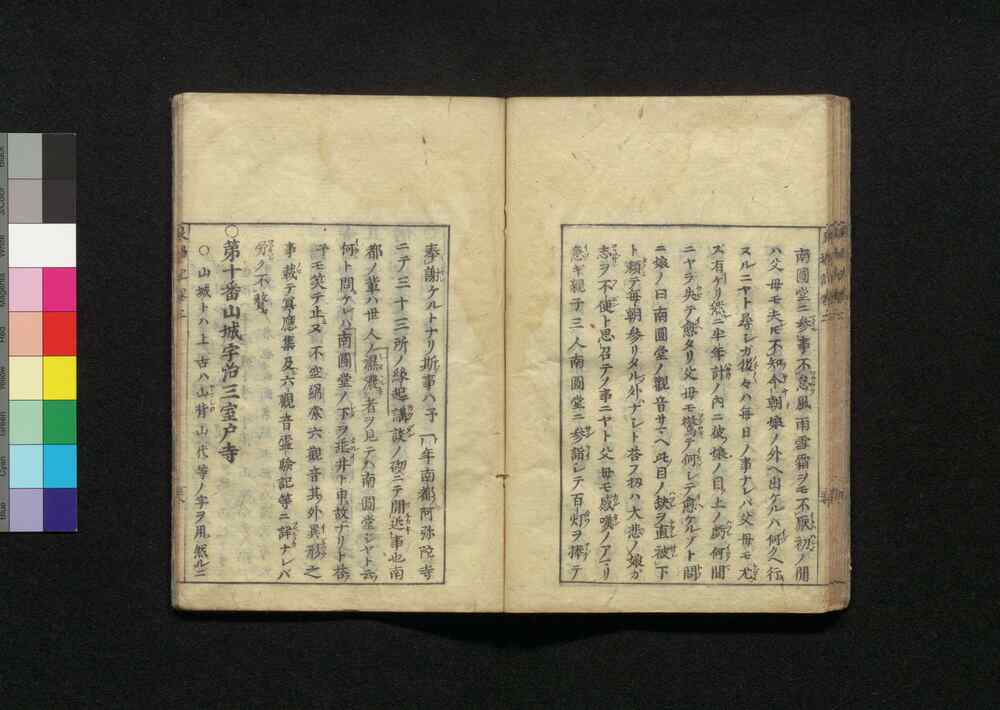 南圓堂ニ參事不怠風雨雪霜ヲモ不厭初ノ間
ハ父母モ夫トモ不知今朝娘ノ外ヘ出ケルハ何久ヘ行
スルニヤト尋シガ後々ハ毎日ノ事ナレバ父母モ尤
ズ有ケリ然ニ半年計ノ内ニ彼娘ノ目上ノ何間
ニヤラ失テ愈タリ父母モ驚テ何レテ愈ケルゾト問
ニ娘ノ曰南圓堂ノ觀音サマヘ此目ノ缺ヲ直被下
ト頼テ毎朝參リタル外ナレト答フ扨ハ大悲ノ娘ガ
志ヲ不便ト思召テノ事ニヤト父母モ感嘆ノアマリ
急ギ親子三人南圓堂ニ參詣シテ百灯ヲ捧テ
奉謝ケルトナリ斯事ハ予年南都阿弥陀寺
ニテ三十三所ノ縁起講談ノ砌ニテ聞近事也南
都ノ輩ハ世人ノ者ヲ見テハ南圓堂ジヤト云
何ト問ケレハ南圓堂ノ下ヲ井ト申故ナリト答
テモ笑テ止ヌ不空絹索六觀音其外異形之
事載テ冥應集及六觀音靈驗記等ニ詳ナレバ
労ク不贅
○第十番山城宇治三室戸寺
○山城トハ上古ハ山背山代等ノ字ヲ用然ルニ